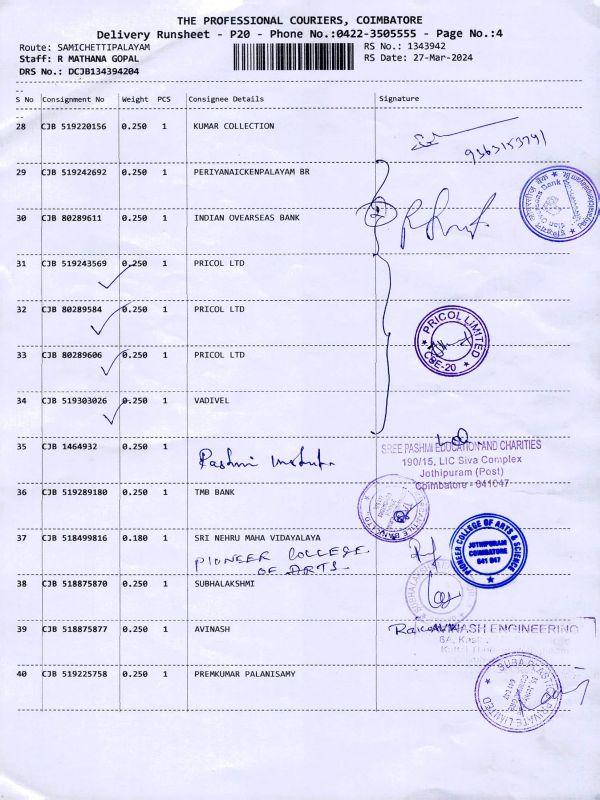 THE PROFESSIONAL COURIERS, COIMBATORE
Delivery Runsheet - P20 - Phone No.:0422-3505555 - Page No.:4
Route: SAMICHETTIPALAYAM RS No.: 1343942
Staff: R MATHANA GOPAL RS Date: 27-Mar-2024
DRS No.: DCJB134394204
S No Consignment No Weight PCS Consignee Details Signature
28 CJB 519220156 0.250 1 KUMAR COLLECTION
9363153791
29 CJB 519242692 0.250 1 PERIYANAICKENPALAYAM BR
30 CJB 80289611 0.250 1 INDIAN OVEARSEAS BANK
31 CJB 519243569 0.250 1 PRICOL LTD
32 CJB 80289584 0.250 1 PRICOL LTD
PRICOL LIMITED
CBE-20
33 CJB 80289606 0.250 1 PRICOL LTD
34 CJB 519303026 0.250 1 VADIVEL
35 CJB 1464932 0.250 1
Rashmi
SREE PASHMI EDUCATION AND CHARITIES
190/15, LIC Siva Complex
Jothipuram (Post)
Coimbatore - 641047
36 CJB 519289180 0.250 1 TMB BANK
37 CJB 518499816 0.180 1 SRI NEHRU MAHA VIDAYALAYA
PIONEER COLLEGE
OF ARTS
PIONEER COLLEGE OF ARTS & SCIENCE
JOTHIPURAM
COIMBATORE
641 047
38 CJB 518875870 0.250 1 SUBHALAKSHMI
39 CJB 518875877 0.250 1 AVINASH
AVINASH ENGINEERING
40 CJB 519225758 0.250 1 PREMKUMAR PALANISAMY
PRIVATE LIMITED